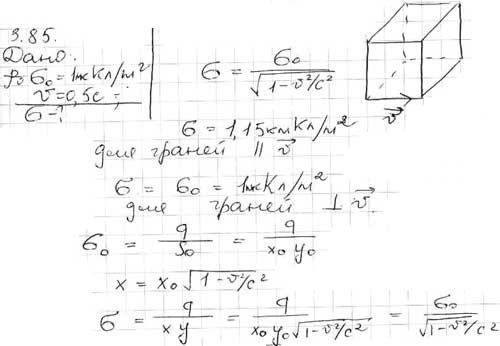 3.85.
Дано:
σ₀ = 1мкКл/м²
v = 0,5c
σ-?
σ = σ₀ / √(1-v²/c²)
v⃗
σ = 1,15 мкКл/м²
для граней || v⃗
σ = σ₀ = 1мкКл/м²
для граней ⊥ v⃗.
σ₀ = q / S₀ = q / (x₀ y₀)
x = x₀ √(1-v²/c²)
σ = q / (x y) = q / (x₀ y₀ √(1-v²/c²)) = σ₀ / √(1-v²/c²)